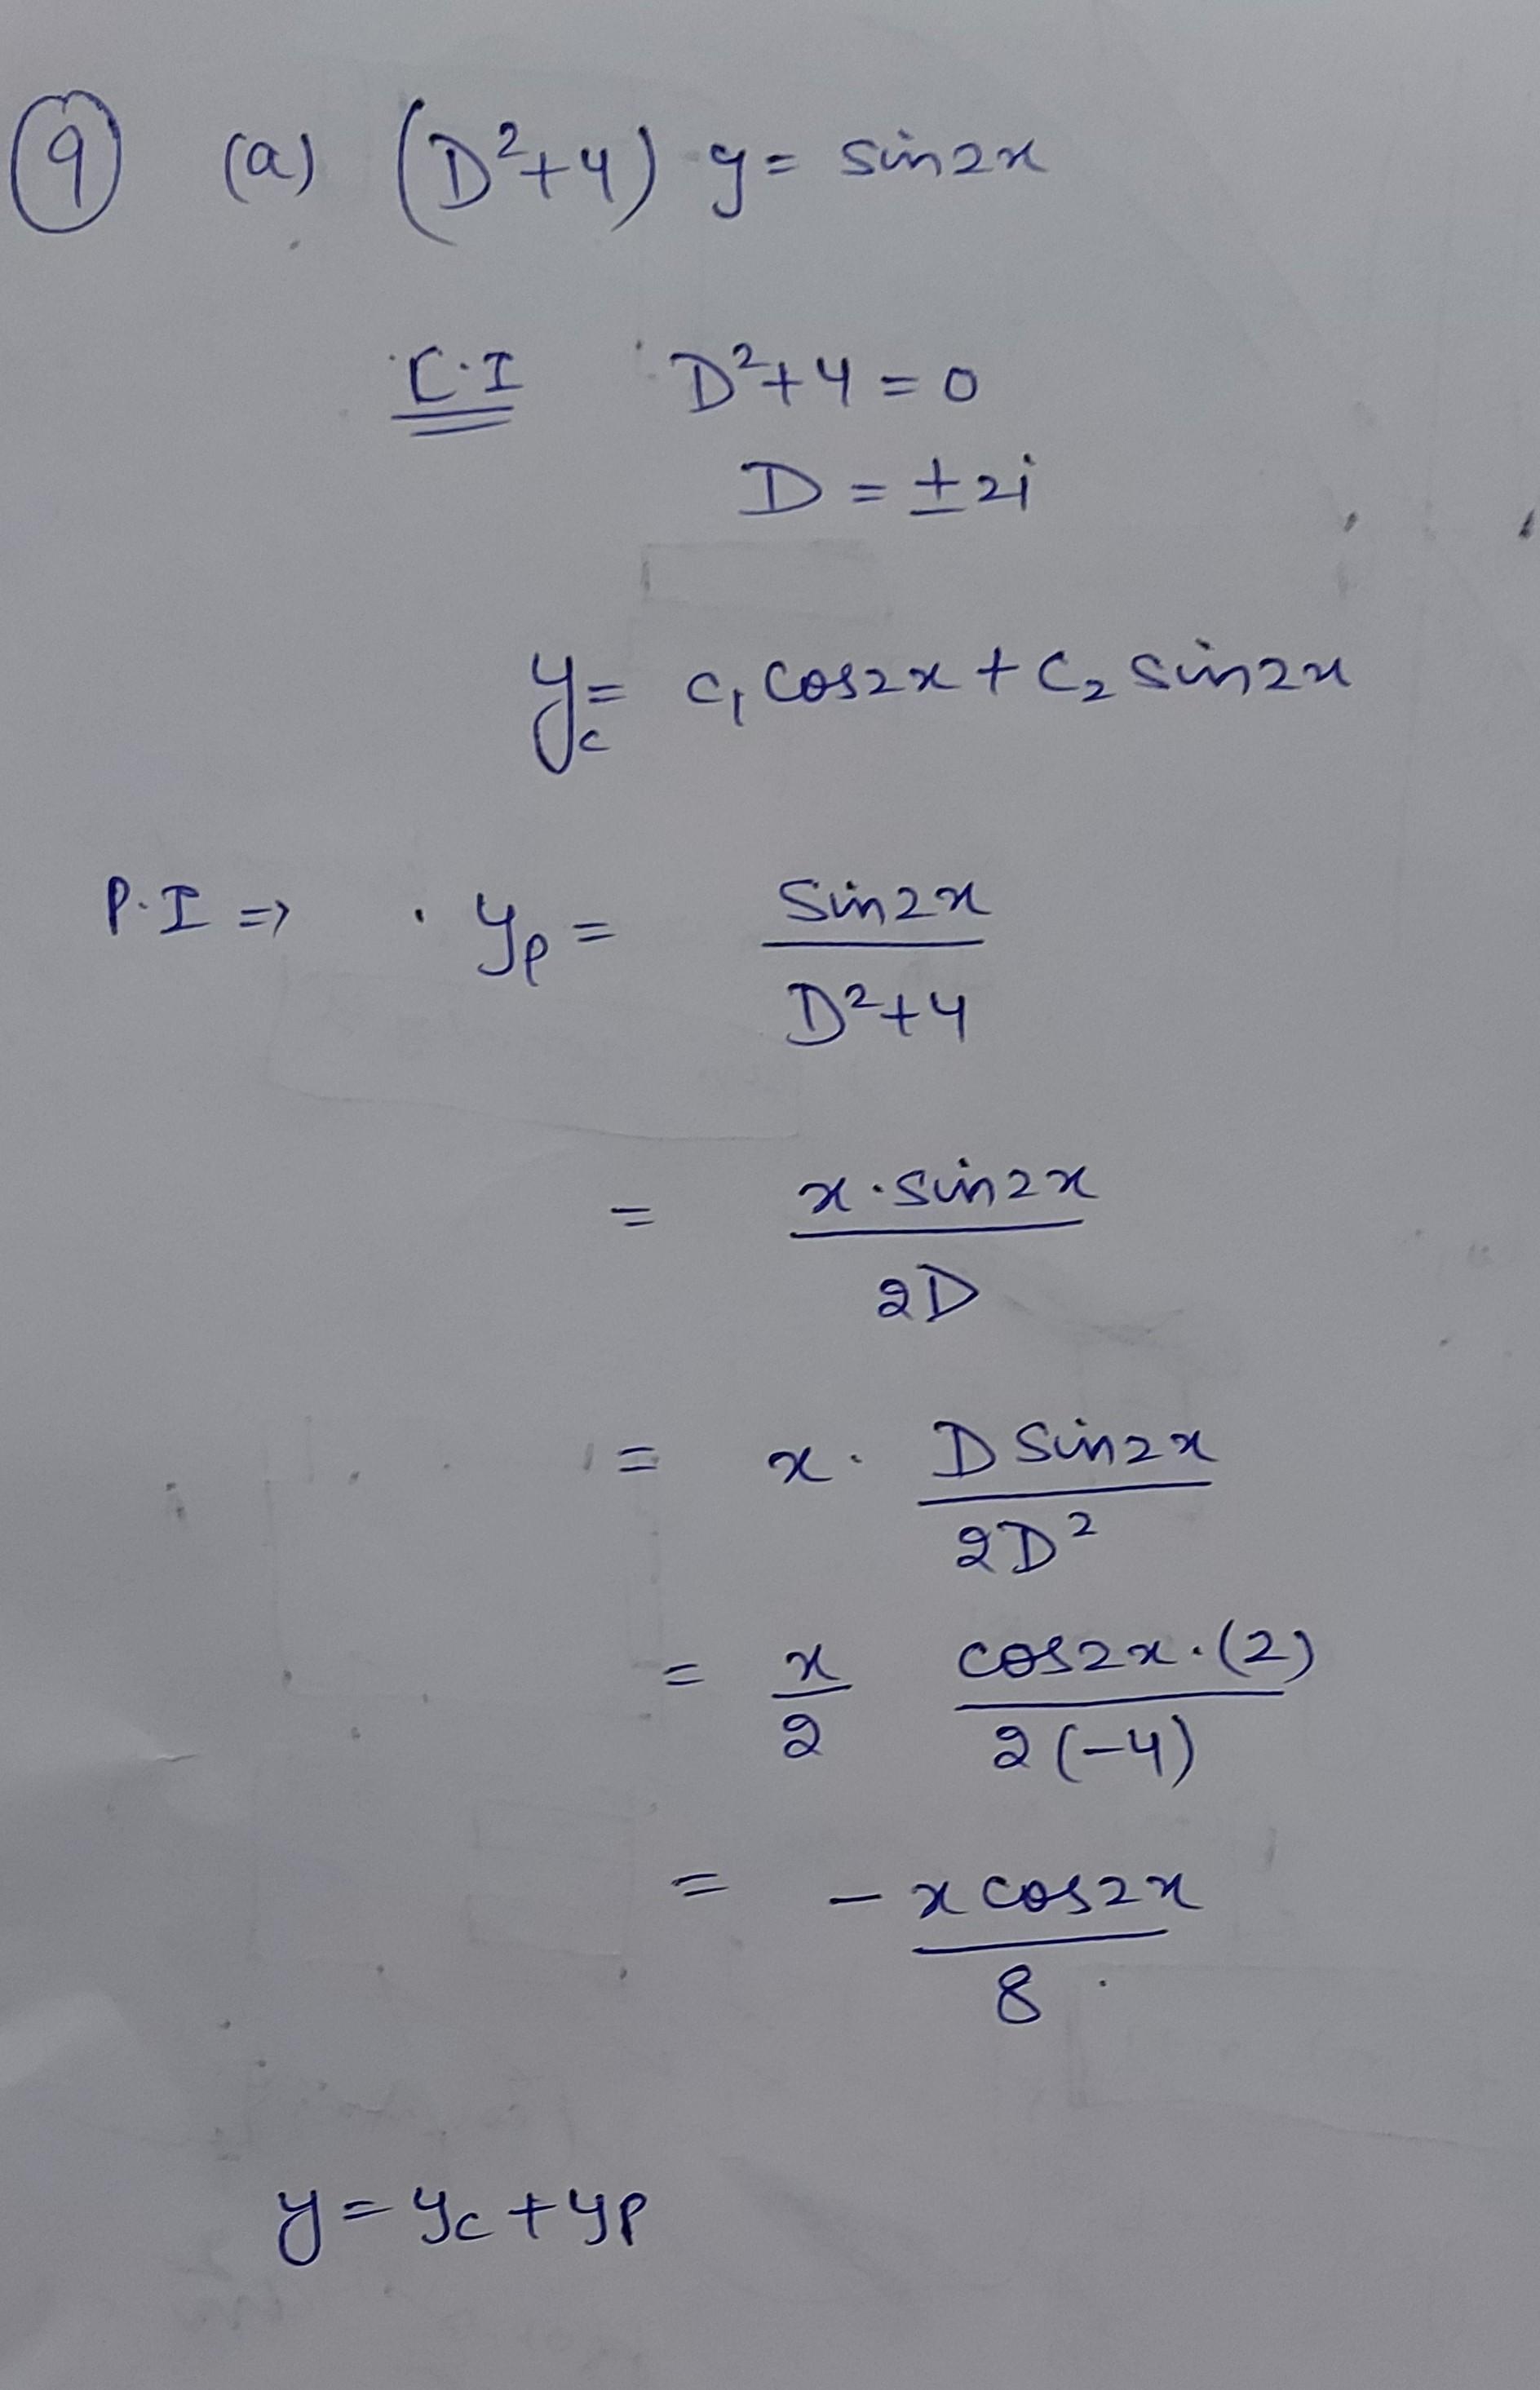 9 (a) (D²+4) y = sin2x
C.I D²+4=0
D = ±2i
y_c = c₁ cos2x + c₂ sin2x
P.I => y_p = sin2x / D²+4
= x·sin2x / 2D
= x· D sin2x / 2D²
= x/2 cos2x·(2) / 2(-4)
= - x cos2x / 8
y = y_c + y_p